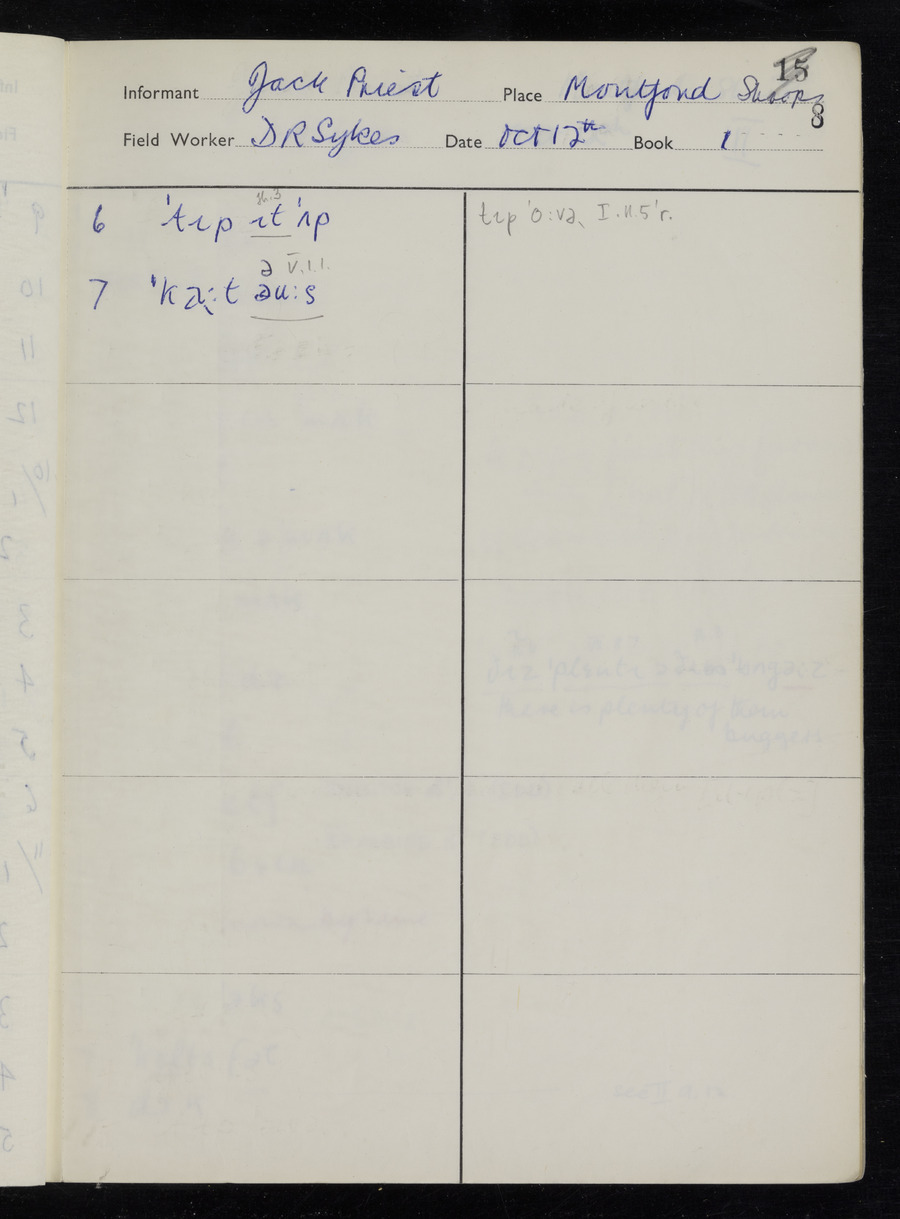 15
Informant Jack Priest Place Montford Shrop
8
Field Worker D R Sykes Date Oct 12th Book 1
6 ˈtɪp ɪt ˈʌp
7 ˈkaːt əuːs
ə V.1.1.
tɪp ˈoːvə, I.11.5ˈr.